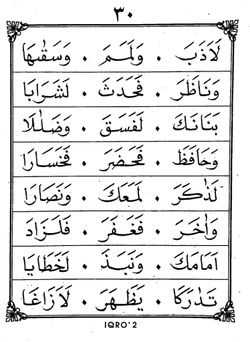 ٣٠
لَاذَبَ . وَلَمَمَ . وَسَقٰىهَا
وَنَاظَرَ . فَحَدَثَ . لَشَرَابَا
بَنَانَكَ . لَفَسَقَ . وَضَلٰلَا
وَحَافَظَ . فَحَضَرَ . فَخَسَارَا
لَذَكَرَ . لَمَعَكَ . وَنَصَارَا
وَاٰخَرَ . فَغَفَرَ . فَلَزَادَ
اَمَامَكَ . وَنَبَذَ . لَخَطَايَا
تَدٰرَكَا . يَظَهَرَ . لَازَاغَا
IQRO' 2